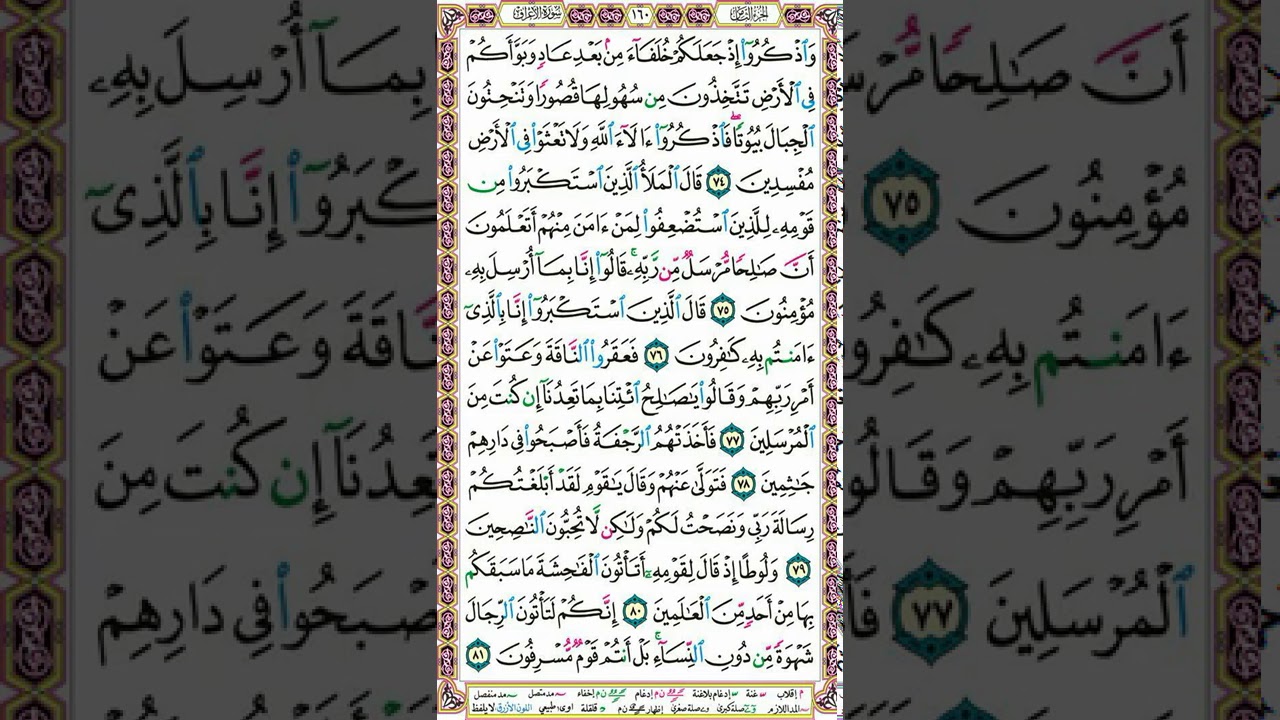 الجزء الثامن
١٦٠
سورة الأعراف
وَٱذْكُرُوٓا۟ إِذْ جَعَلَكُمْ خُلَفَآءَ مِنۢ بَعْدِ عَادٍ وَبَوَّأَكُمْ
فِى ٱلْأَرْضِ تَتَّخِذُونَ مِن سُهُولِهَا قُصُورًا وَتَنْحِتُونَ
ٱلْجِبَالَ بُيُوتًا ۖ فَٱذْكُرُوٓا۟ ءَالَآءَ ٱللَّهِ وَلَا تَعْثَوْا۟ فِى ٱلْأَرْضِ
مُفْسِدِينَ ٧٤ قَالَ ٱلْمَلَأُ ٱلَّذِينَ ٱسْتَكْبَرُوا۟ مِن
قَوْمِهِۦ لِلَّذِينَ ٱسْتُضْعِفُوا۟ لِمَنْ ءَامَنَ مِنْهُمْ أَتَعْلَمُونَ
أَنَّ صَٰلِحًا مُّرْسَلٌ مِّن رَّبِّهِۦ ۚ قَالُوٓا۟ إِنَّا بِمَآ أُرْسِلَ بِهِۦ
مُؤْمِنُونَ ٧٥ قَالَ ٱلَّذِينَ ٱسْتَكْبَرُوٓا۟ إِنَّا بِٱلَّذِىٓ
ءَامَنتُم بِهِۦ كَٰفِرُونَ ٧٦ فَعَقَرُوا۟ ٱلنَّاقَةَ وَعَتَوْا۟ عَنْ
أَمْرِ رَبِّهِمْ وَقَالُوا۟ يَٰصَٰلِحُ ٱئْتِنَا بِمَا تَعِدُنَآ إِن كُنتَ مِنَ
ٱلْمُرْسَلِينَ ٧٧ فَأَخَذَتْهُمُ ٱلرَّجْفَةُ فَأَصْبَحُوا۟ فِى دَارِهِمْ
جَٰثِمِينَ ٧٨ فَتَوَلَّىٰ عَنْهُمْ وَقَالَ يَٰقَوْمِ لَقَدْ أَبْلَغْتُكُمْ
رِسَالَةَ رَبِّى وَنَصَحْتُ لَكُمْ وَلَٰكِن لَّا تُحِبُّونَ ٱلنَّٰصِحِينَ
٧٩ وَلُوطًا إِذْ قَالَ لِقَوْمِهِۦٓ أَتَأْتُونَ ٱلْفَٰحِشَةَ مَا سَبَقَكُم
بِهَا مِنْ أَحَدٍ مِّنَ ٱلْعَٰلَمِينَ ٨٠ إِنَّكُمْ لَتَأْتُونَ ٱلرِّجَالَ
شَهْوَةً مِّن دُونِ ٱلنِّسَآءِ ۚ بَلْ أَنتُمْ قَوْمٌ مُّسْرِفُونَ ٨١
م إقلاب غنة إدغام بلاغنة ن م إدغام ن م إخفاء مد متصل مد منفصل
المد اللازم صلة كبرى صلة صغرى إظهار ن م قلقلة اوى: طبيعي اللون الأزرق: لا يلفظ